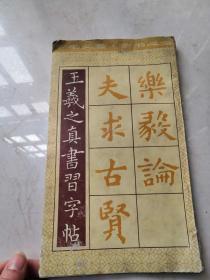 樂毅論
夫求古賢
王羲之真書習字帖